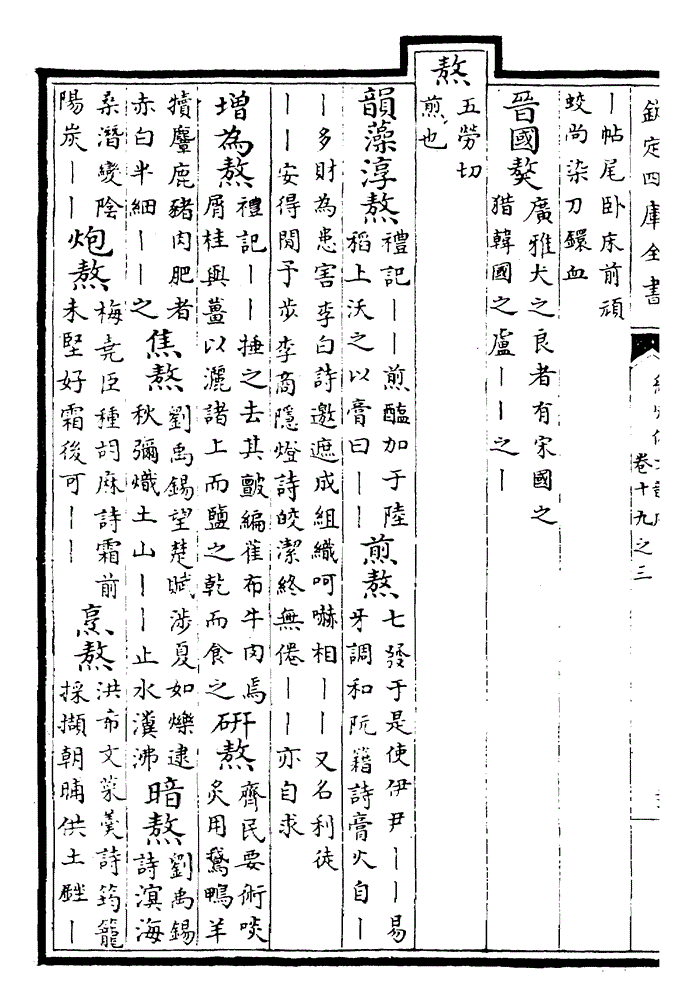 欽定四庫全書
卷十九之三
｜帖尾卧床前頑
蛟尚染刀鐶血
晉國獒
廣雅犬之良者有宋國之
猎韓國之盧｜｜之｜
熬
五勞切
煎也
韻藻淳熬
禮記｜｜煎醢加于陸
稻上沃之以膏曰｜｜
煎熬
七發于是使伊尹｜｜易
牙調和阮籍詩膏火自｜
｜多財為患害李白詩邀遮成組織呵嚇相｜｜又名利徒
｜｜安得閒予步李商隱燈詩皎潔終無倦｜｜亦自求
增為熬
禮記｜｜捶之去其皽編萑布牛肉焉
屑桂與薑以灑諸上而鹽之乾而食之
硏熬
齊民要術啖
炙用鵞鴨羊
犢麞鹿豬肉肥者
赤白半細｜｜之
焦熬
劉禹錫望楚賦涉夏如爍逮
秋彌熾土山｜｜止水瀵沸
暗熬
劉禹錫
詩溟海
桑潛變陰
陽炭｜｜
炮熬
梅堯臣種詞麻詩霜前
未堅好霜後可｜｜
烹熬
洪希文菜羹詩筠籠
採擷朝晡供土䥶｜